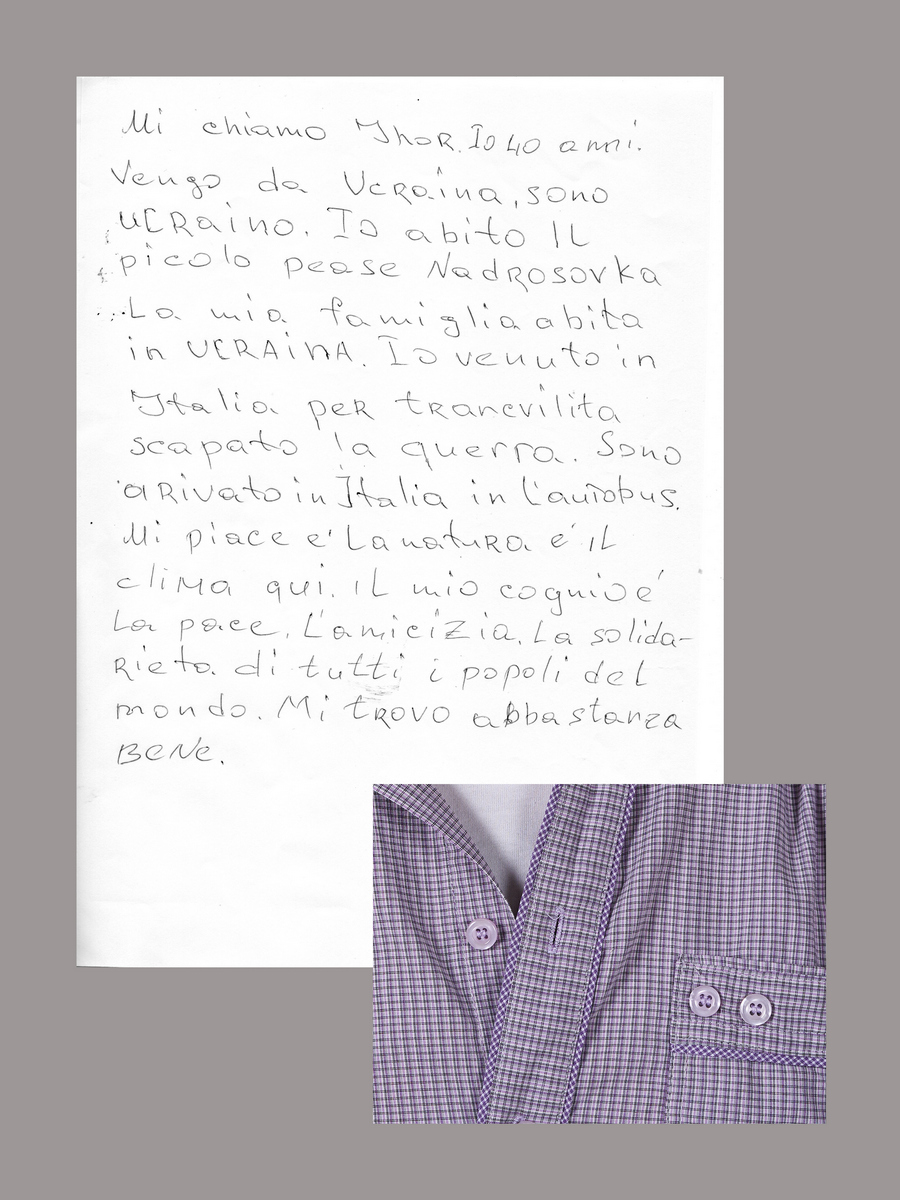 Mi chiamo Ihor. Io 40 anni.
Vengo da Ucraina, sono
UCRaino. Io abito IL
picolo pease Nadrosovka
La mia famiglia abita
in UCRAiNA. Io venuto in
Italia per trancvilita
scapato la querra. Sono
arivato in Italia in l'autobus.
Mi piace e' La natura e' iL
cliMa qui. iL mio cognio e'
La pace. L'amicizia. La solida-
Rieta di tutti i popoli del
mondo. Mi tROVO abbastanza
BeNe.